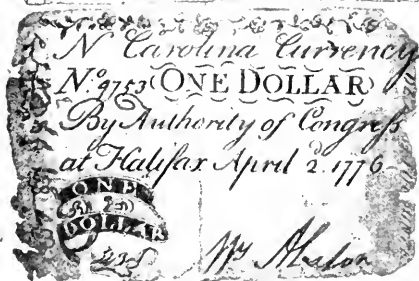 N Carolina Currency
No. 9753 (ONE DOLLAR)
By Authority of Congress
at Halifax April 2d. 1776
ONE
DOLLAR
Wm